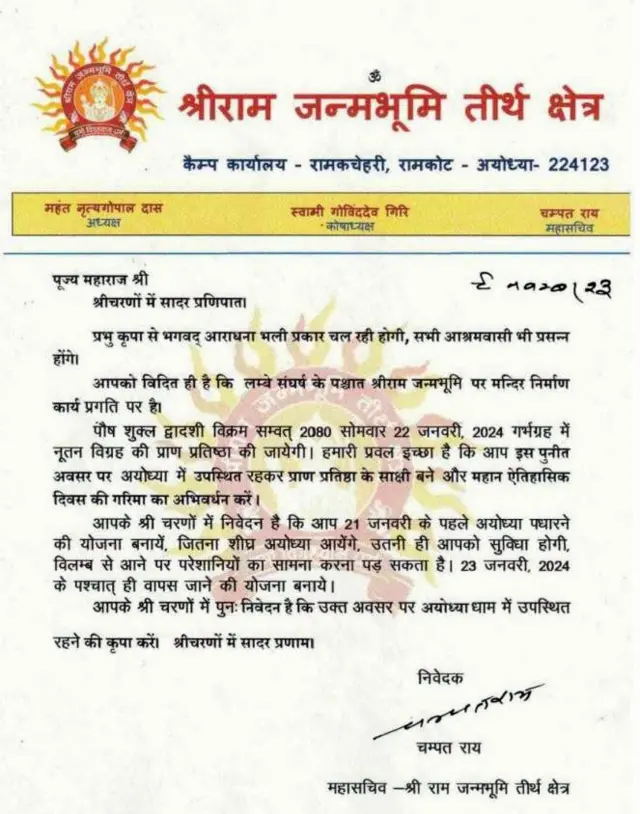 ॐ
श्रीराम जन्मभूमि तीर्थ क्षेत्र
कैम्प कार्यालय - रामकचेहरी, रामकोट - अयोध्या- 224123
महंत नृत्यगोपाल दास
अध्यक्ष
स्वामी गोविंददेव गिरि
कोषाध्यक्ष
चम्पत राय
महासचिव
पूज्य महाराज श्री
श्रीचरणों में सादर प्रणिपात।
प्रभु कृपा से भगवद् आराधना भली प्रकार चल रही होगी, सभी आश्रमवासी भी प्रसन्न
होंगे।
आपको विदित ही है कि लम्बे संघर्ष के पश्चात श्रीराम जन्मभूमि पर मन्दिर निर्माण
कार्य प्रगति पर है।
पौष शुक्ल द्वादशी विक्रम सम्वत् 2080 सोमवार 22 जनवरी, 2024 गर्भग्रह में
नूतन विग्रह की प्राण प्रतिष्ठा की जायेगी। हमारी प्रवल इच्छा है कि आप इस पुनीत
अवसर पर अयोध्या में उपस्थित रहकर प्राण प्रतिष्ठा के साक्षी बने और महान ऐतिहासिक
दिवस की गरिमा का अभिवर्धन करें।
आपके श्री चरणों में निवेदन है कि आप 21 जनवरी के पहले अयोध्या पधारने
की योजना बनायें, जितना शीघ्र अयोध्या आयेंगे, उतनी ही आपको सुविधा होगी,
विलम्ब से आने पर परेशानियों का सामना करना पड़ सकता है। 23 जनवरी, 2024
के पश्चात् ही वापस जाने की योजना बनाये।
आपके श्री चरणों में पुनः निवेदन है कि उक्त अवसर पर अयोध्याधाम में उपस्थित
रहने की कृपा करें। श्रीचरणों में सादर प्रणाम।
निवेदक
चम्पतराय
चम्पत राय
महासचिव –श्री राम जन्मभूमि तीर्थ क्षेत्र